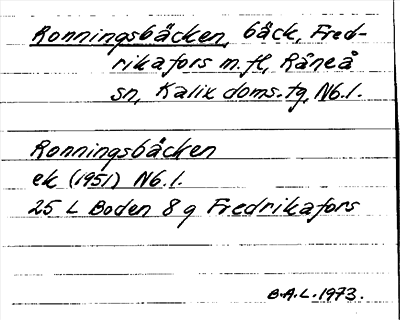 Ronningsbäcken, bäck, Fred-
rikafors m.fl, Råneå
sn, Kalix doms.tg, Nb.l.
Ronningsbäcken
ek (1951) Nb.l.
25 L Boden 8 g Fredrikafors
B.A.L. 1973.